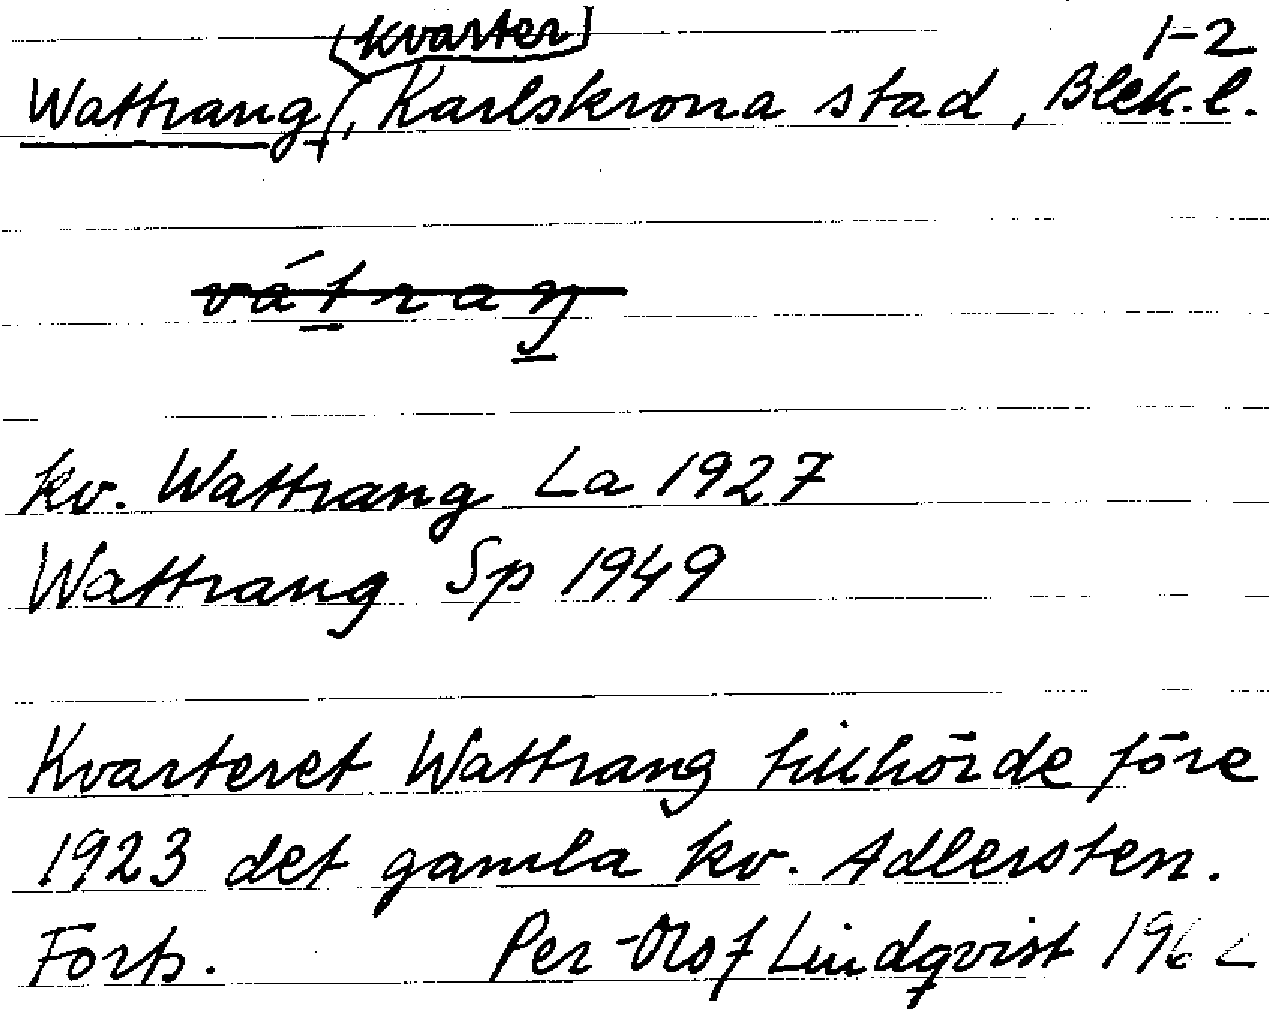 (kvarter) 1-2
Wattrang, Karlskrona stad, Blek. l.
vátraŋ
kv. Wattrang La 1927
Wattrang Sp 1949
Kvarteret Wattrang tillhörde före
1923 det gamla kv. Adlersten.
Forts. Per-Olof Lindqvist 1962